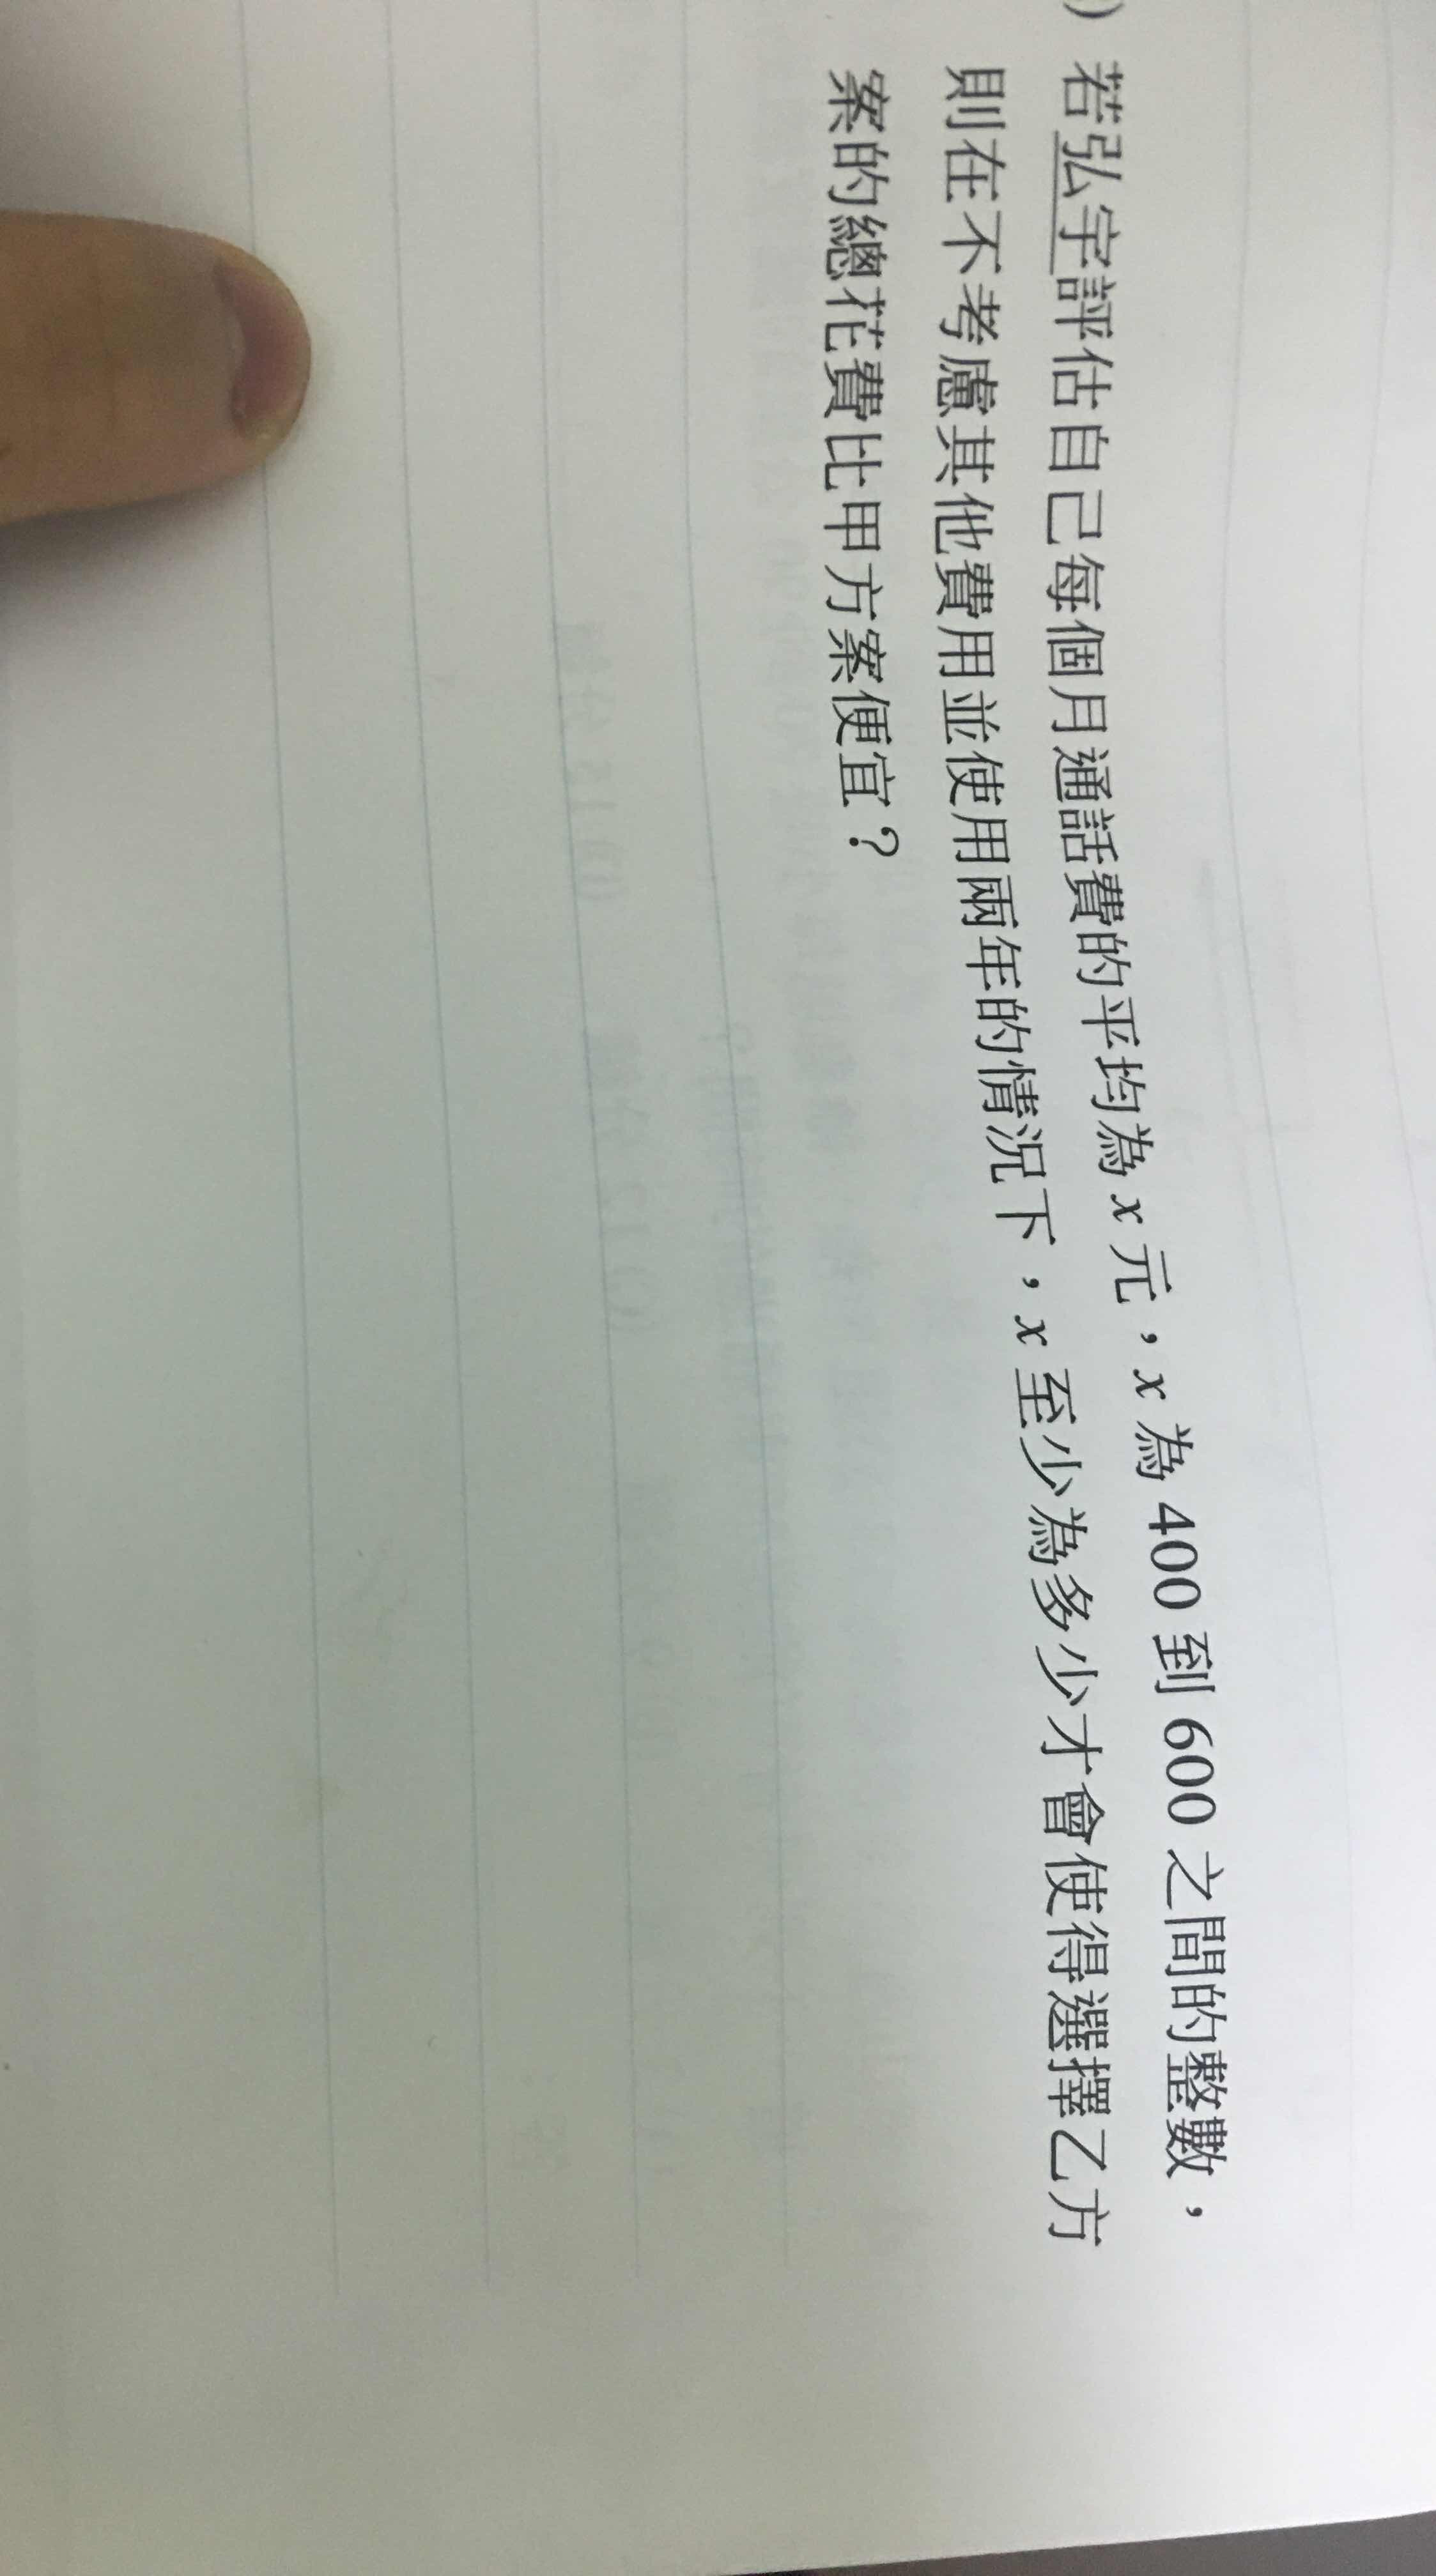 ) 若弘宇評估自己每個月通話費的平均為 x 元，x 為 400 到 600 之間的整數，
則在不考慮其他費用並使用兩年的情況下，x 至少為多少才會使得選擇乙方
案的總花費比甲方案便宜？